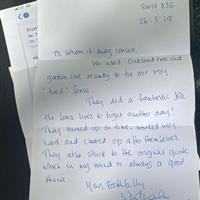 Surid
26·5·19
To Whom it may concern,
We used Overland tree and
garden care recently to fix our very
'tired' fence.
They did a fantastic job,
The fence lives to fight another day!
They turned up on time, worked very
hard and cleared up after themselves.
They also stuck to the original quote
which in my mind is always a good
thing.
Yours Faithfully
From
Hi